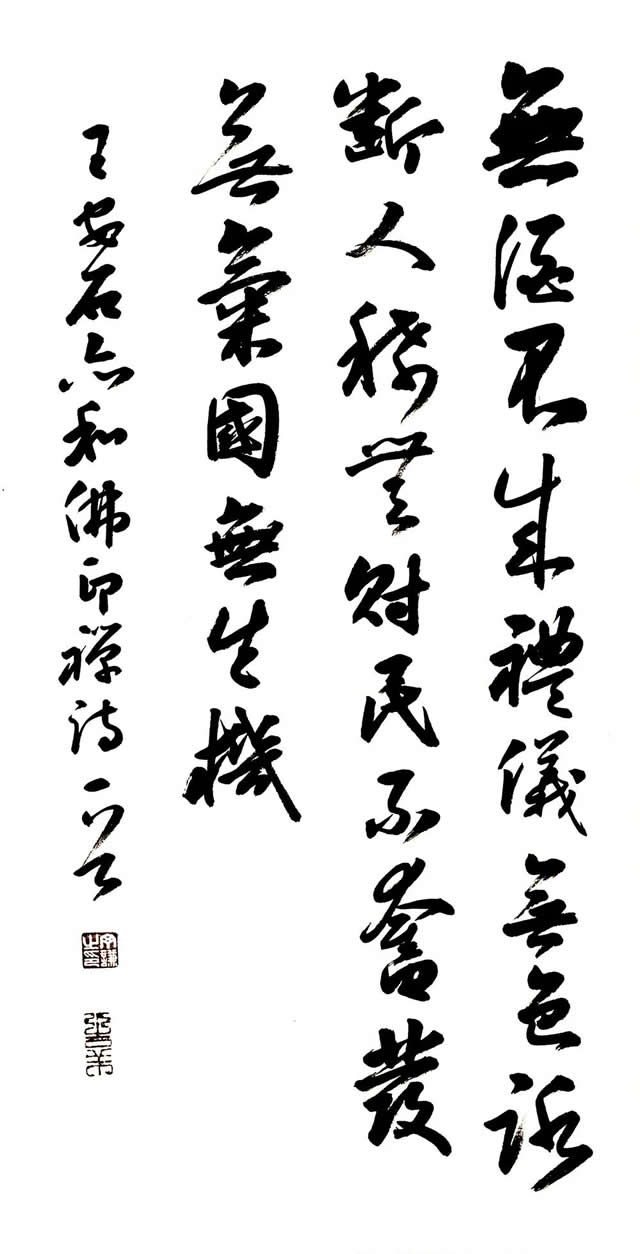 無酒不成禮儀無色路
斷人稀無財民不奮發
無氣國無生機
王安石亦和佛印禪詩